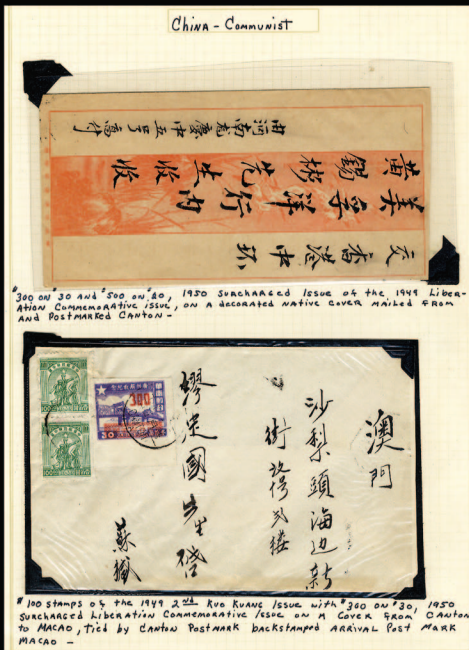 China - Communist
由河南尤慶中五号寄付
黄錫彬先生收
美孚洋行内收
交香港中环
#300 on #30 and #500 on #20, 1950 Surcharged Issue of the 1949 Liber-
ation Commemorative issue, on a decorated native cover mailed from
and postmarked Canton -
澳門
沙梨頭海边新
街
號
樓
繆定國先生啓
蘇緘
300
30
100
100
#100 stamps of the 1949 2nd Kuo Kuang Issue with #300 on #30, 1950
Surcharged Liberation Commemorative Issue on a cover from Canton
to Macao, tied by Canton postmark backstamped arrival Post Mark
Macao -